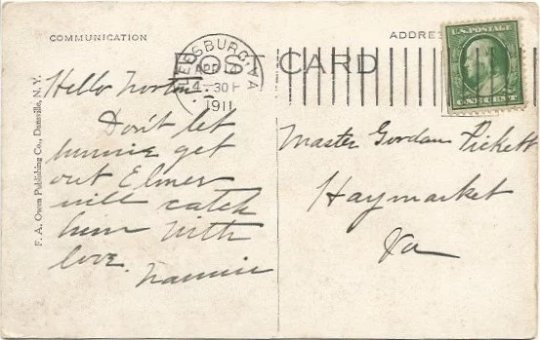 COMMUNICATION
ADDRE
POST CARD
LEESBURG, VA
APR
4 30 P
1911
U.S. POSTAGE
ONE CENT
F. A. Owen Publishing Co., Dansville, N. Y.
Hello
Don't let
bunnie get
out Elmer
will catch
him With
love.
Nannie
Master Gordan Pickett
Haymarket
Va